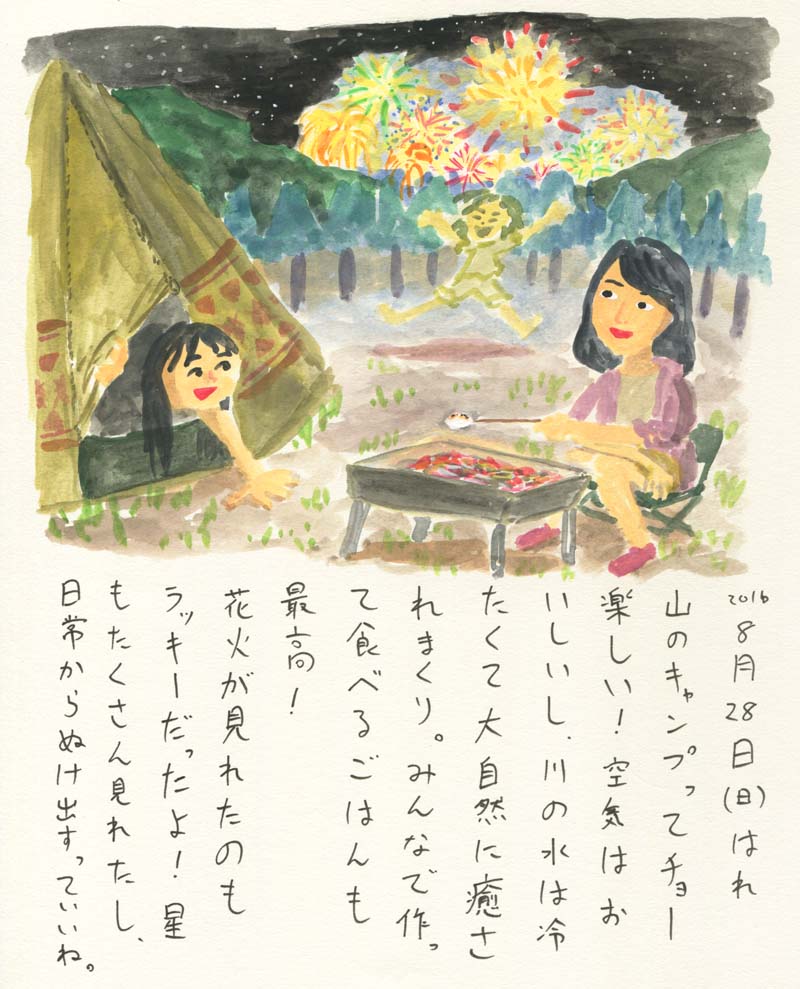 2016 8月28日(日)はれ
山のキャンプってチョー
楽しい！空気はお
いしいし、川の水は冷
たくて大自然に癒さ
れまくり。みんなで作っ
て食べるごはんも
最高！
花火が見れたのも
ラッキーだったよ！星
もたくさん見れたし、
日常からぬけ出すっていいね。